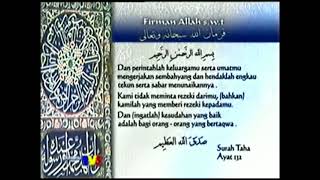 Firman Allah s.w.t
فرمان الله سبحانه وتعالى
بسم الله الرحمن الرحيم
Dan perintahlah keluargamu serta umatmu
mengerjakan sembahyang dan hendaklah engkau
tekun serta sabar menunaikannya .
Kami tidak meminta rezeki darimu, (bahkan)
kamilah yang memberi rezeki kepadamu.
Dan (ingatlah) kesudahan yang baik
adalah bagi orang - orang yang bertaqwa .
صدق الله العظيم
Surah Taha
Ayat 132